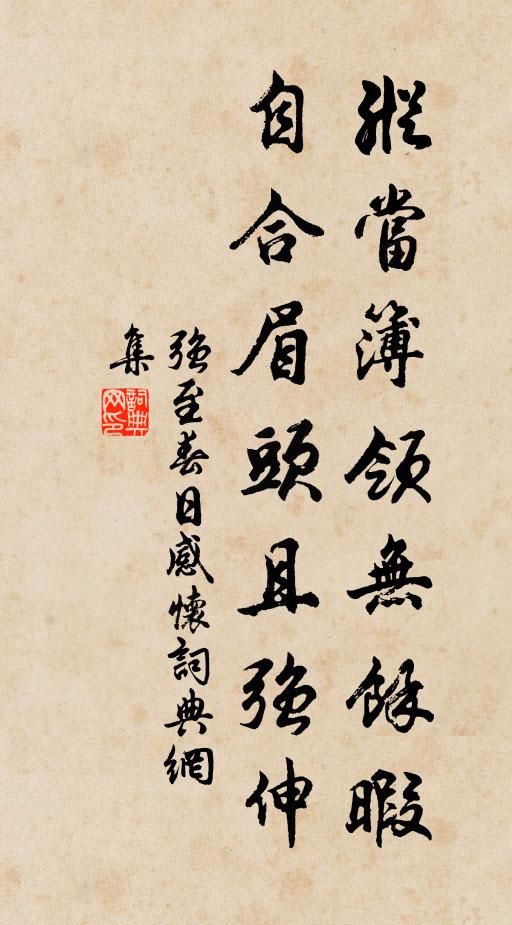 縱當簿領無餘暇
自合眉頭且強伸
強至春日感懷詞典網
集
詞典网印